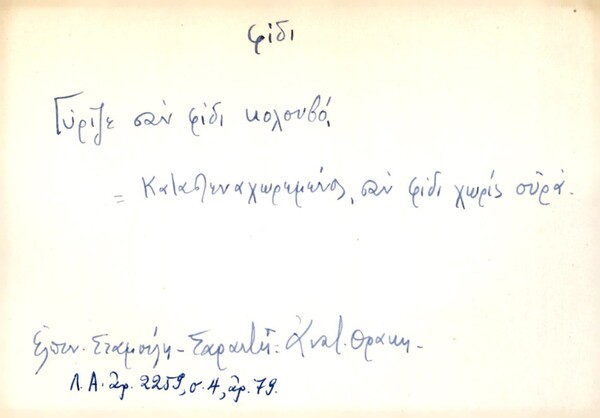 φίδι
Γύριζε σαν φίδι κολουβό,
= Καταστεναχωρημένος, σαν φίδι χωρίς οὐρά.
Ἐλπιν. Σταμούλη - Σαραντῆ: Ἀνατ. Θράκη -
Λ.Α. ἀρ. 2259, σ. 4, ἀρ. 79.